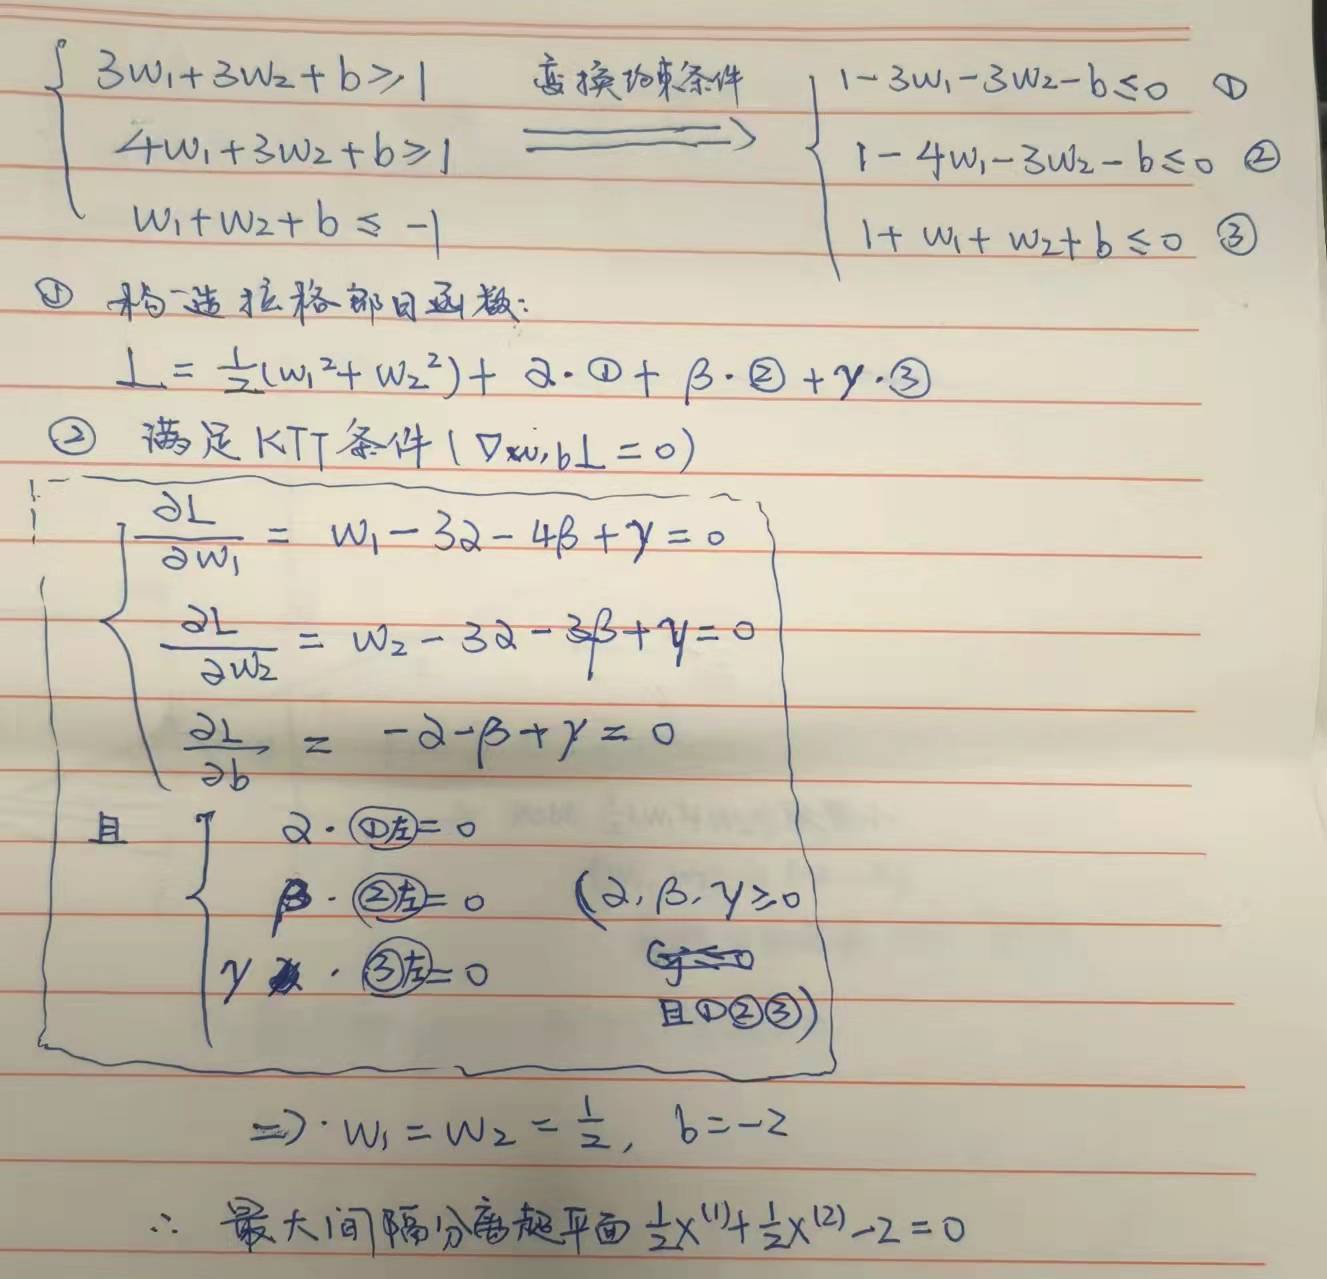 3w₁+3w₂+b≥1 变换约束条件 1-3w₁-3w₂-b≤0 ①
4w₁+3w₂+b≥1 ⟹ 1-4w₁-3w₂-b≤0 ②
w₁+w₂+b≤-1 1+w₁+w₂+b≤0 ③
① 构造拉格郎日函数:
L=½(w₁²+w₂²)+α·①+β·②+γ·③
② 满足KTT条件(∇w,bL=0)
∂L/∂w₁ = w₁-3α-4β+γ=0
∂L/∂w₂ = w₂-3α-3β+γ=0
∂L/∂b = -α-β+γ=0
且 α·①左=0
β·②左=0 (α,β,γ≥0
γ·③左=0
且①②③)
⇒·w₁=w₂=½, b=-2
∴ 最大间隔分离超平面½x⁽¹⁾+½x⁽²⁾-2=0